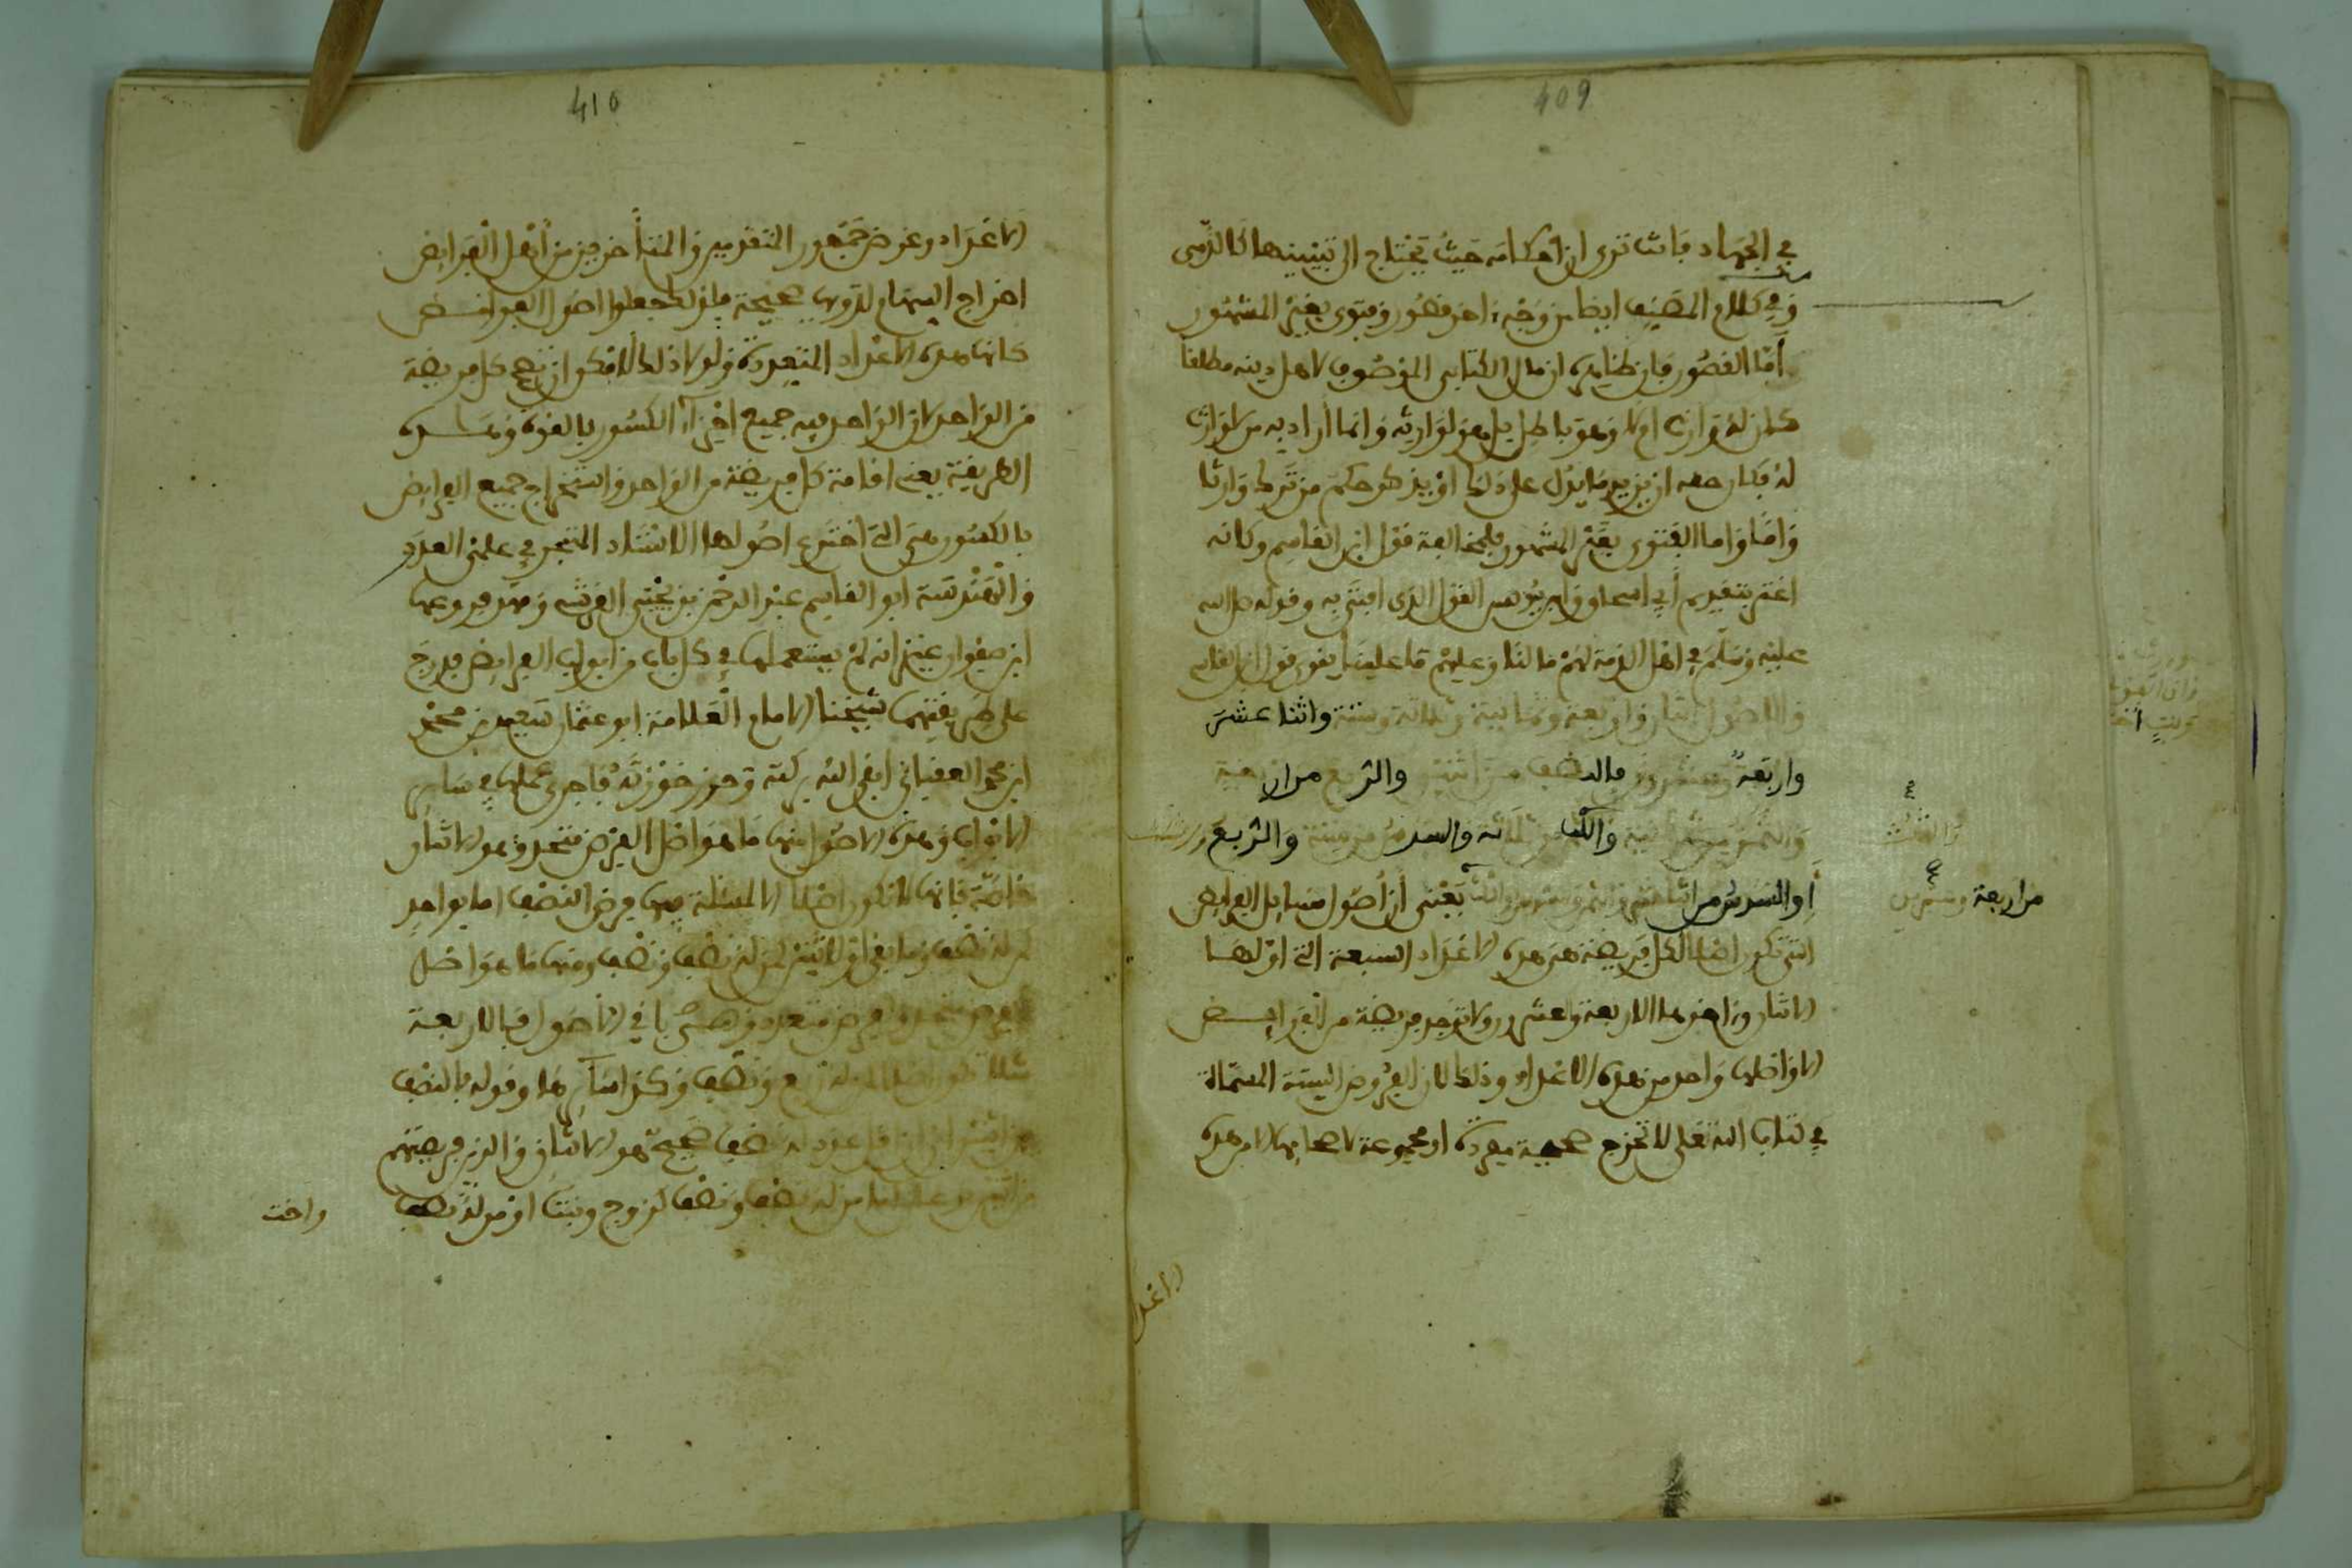 409
في الجهاد فانت ترى ان احكامه حيث يحتاج الى تبيينها كالذمي
وفي كلام المصنف ايضا من وجه اخر قصور وفتوى بغير المشهور
اما القصور فان ظاهره ان مال الكتابي الموصوف لاهل دينه مطلقا
كان له وارث او لا وهو باطل بل هو لوارثه وانما اراد به من لا وارث
له فكان حقه ان يزيد ما يدل على ذلك او يذكر حكم من ترك وارثا
واما الفتوى بغير المشهور فلمخالفة قول ابن القاسم وكانه
اغتر بتقديم ابي اسحاق وابن يونس القول الذي افتى به وقوله صلى الله
عليه وسلم في اهل الذمة لهم ما لنا وعليهم ما علينا يقوي قول ابن القاسم
والاصول اثنان واربعة وثمانية وثلاثة وستة واثنا عشر
واربعة وعشرون فالنصف من اثنين والربع من اربعة
والثمن من ثمانية والثلث من ثلاثة والسدس من ستة والربع
والثلث
او السدس من اثنا عشر والثمن والسدس او الثلث يعني ان اصول مسائل الفرائض
من اربعة وعشرين
التي تكون اصلا لكل فريضة هي هذه الاعداد السبعة التي اولها
الاثنان واخرها الاربعة وعشرون ولا توجد فريضة من الفرائض
الا واصلها واحد من هذه الاعداد وذلك لان الفروض الستة المسماة
في كتاب الله تعلى لا تخرج صحيحة مفردة او مجموعة لاصحابها الا من هذه
الاعداد
410
الاعداد وغرض جمهور المتقدمين والمتأخرين من اهل الفرائض
اخراج السهام لذويها صحيحة فلذلك جعلوا اصول الفرائض
كلها هذه الاعداد المتعددة ولولا ذلك لامكن ان تصح كل فريضة
من الواحد لان الواحد فيه جميع اجزاء الكسور بالقوة وهذه
الطريقة يعني اقامة كل فريضة من الواحد واستخراج جميع الفرائض
بالكسور هي التي اخترع اصولها الاستاذ المتبحر في علمي العدد
والهندسة ابو القاسم عبد الرحمن بن يحيى القرشي ومهد فروعها
ابن صفوان غير انه لم يستعملها في كل باب من ابواب الفرائض فدرج
على طريقتهما شيخنا الامام العلامة ابو عثمان سعيد بن محمد
ابن محمد العقباني ابقى الله بركته وحرز حوزته فاجرى عملها في سائر
الابواب وهذه الاصول منها ما هو اصل لفرض متحد وهو الاثنان
خاصة فانها لا تكون اصلا الا لمسئلة فيها فرض النصف اما بواحد
له نصف وما بقي او لاثنين لمن له نصف ونصف ومنها ما هو اصل
لفرض متحد او فرض متعدد وهي باقي الاصول فالاربعة
مثلا تكون اصلا لمن له ربع ونصف وكذا سائرها وقوله فالنصف
من اثنين اي ان اقل عدد له نصف صحيح هو الاثنان والذين فريضتهم
من له نصف ونصف كزوج وبنت او من له نصف
واخت